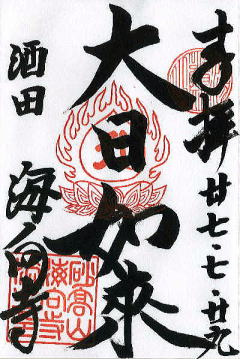 奉拝 廿七・七・廿九
大日如来
酒田 海向寺
砂高山
海向寺